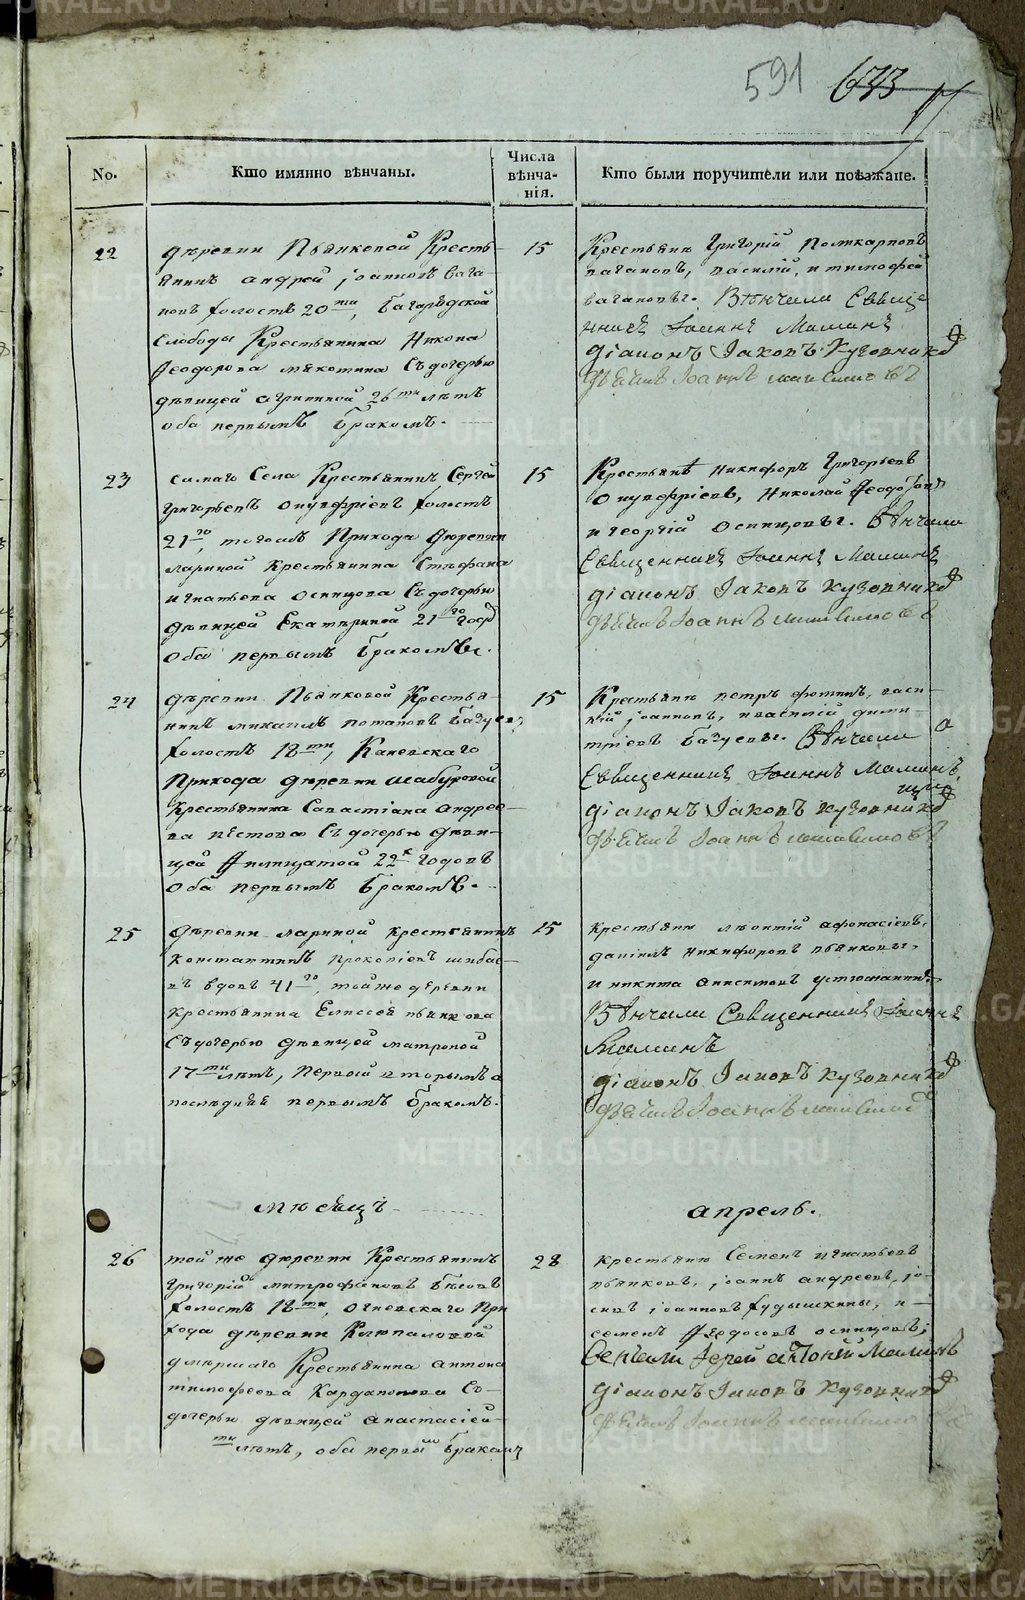 591 633
No.
Кто имянно вѣнчаны.
Числа вѣнча-нія.
Кто были поручители или поѣзжане.
22
деревни Пьянковой Кресть-
янинъ андрей іоанновъ вага-
новъ холостъ 20ти,
слободы Крестьянина Никона
Феодорова мякотина съ дочерью
дѣвицей агрипиной 26ти лѣтъ
оба первымъ бракомъ.
15
Крестьяне Григорій Поликарповъ
вагановъ, василій, и тимофей
вагановы. Вѣнчали Священ-
никъ Іоаннъ Маминъ
діаконъ Іаковъ Кузовников
дьячекъ Іоаннъ
23
самаго Села Крестьянинъ Сергей
Григорьевъ онуфріевъ холостъ
21го, тогожъ Прихода деревни
лариной Крестьянина Стефана
игнатьева осинцова съ дочерью
дѣвицей Екатериной 21го года
оба первымъ бракомъ.
15
Крестьяне никифоръ Григорьевъ
онуфріевъ, николай Феодоровъ
и георгій осинцовы. Вѣнчали
Священникъ Іоаннъ Маминъ
діаконъ Іаковъ Кузовников
дьячекъ Іоаннъ
24
деревни Пьянковой Крестья-
нинъ михаилъ потаповъ
холостъ 18ти, Каневскаго
Прихода деревни шабуровой
Крестьянина Савастіана андрее-
ва пестова съ дочерью дѣви-
цей 22х годовъ
оба первымъ бракомъ.
15
Крестьяне петръ фотинъ, васи-
лій іоанновъ, и василій дими-
тріевъ Вѣнчали
Священникъ Іоаннъ Маминъ,
діаконъ Іаковъ Кузовников
дьячекъ Іоаннъ
25
деревни лариной крестьянинъ
константинъ прокопіевъ
вдовъ 41го, тойже деревни
крестьянина Елисея пьянкова
съ дочерью дѣвицей матроной
17ти лѣтъ, первой вторымъ а
последняя первымъ бракомъ.
15
крестьяне леонтій афонасіевъ,
даніилъ никифоровъ пьянковы,
и никита анисимовъ
Вѣнчали Священникъ Іоаннъ
Маминъ
діаконъ Іаковъ Кузовников
дьячекъ Іоаннъ
мѣсяцъ
апрель.
26
той же деревни Крестьянинъ
Григорій митрофановъ
холостъ 18ти, огневскаго При
хода деревни
умершаго Крестьянина антона
тимофеева съ
дочерью дѣвицей анастасіей
ти лѣтъ, оба первымъ бракомъ
28
крестьяне Семенъ игнатьевъ
пьянковъ, іоаннъ андреевъ, іо-
іоанновъ худышкины, и
семенъ Федосовъ осинцовъ;
Венчали Іерей антоній Маминъ
діаконъ Іаковъ Кузовников
дьячекъ Іоаннъ
METRIKI.GASO-URAL.RU